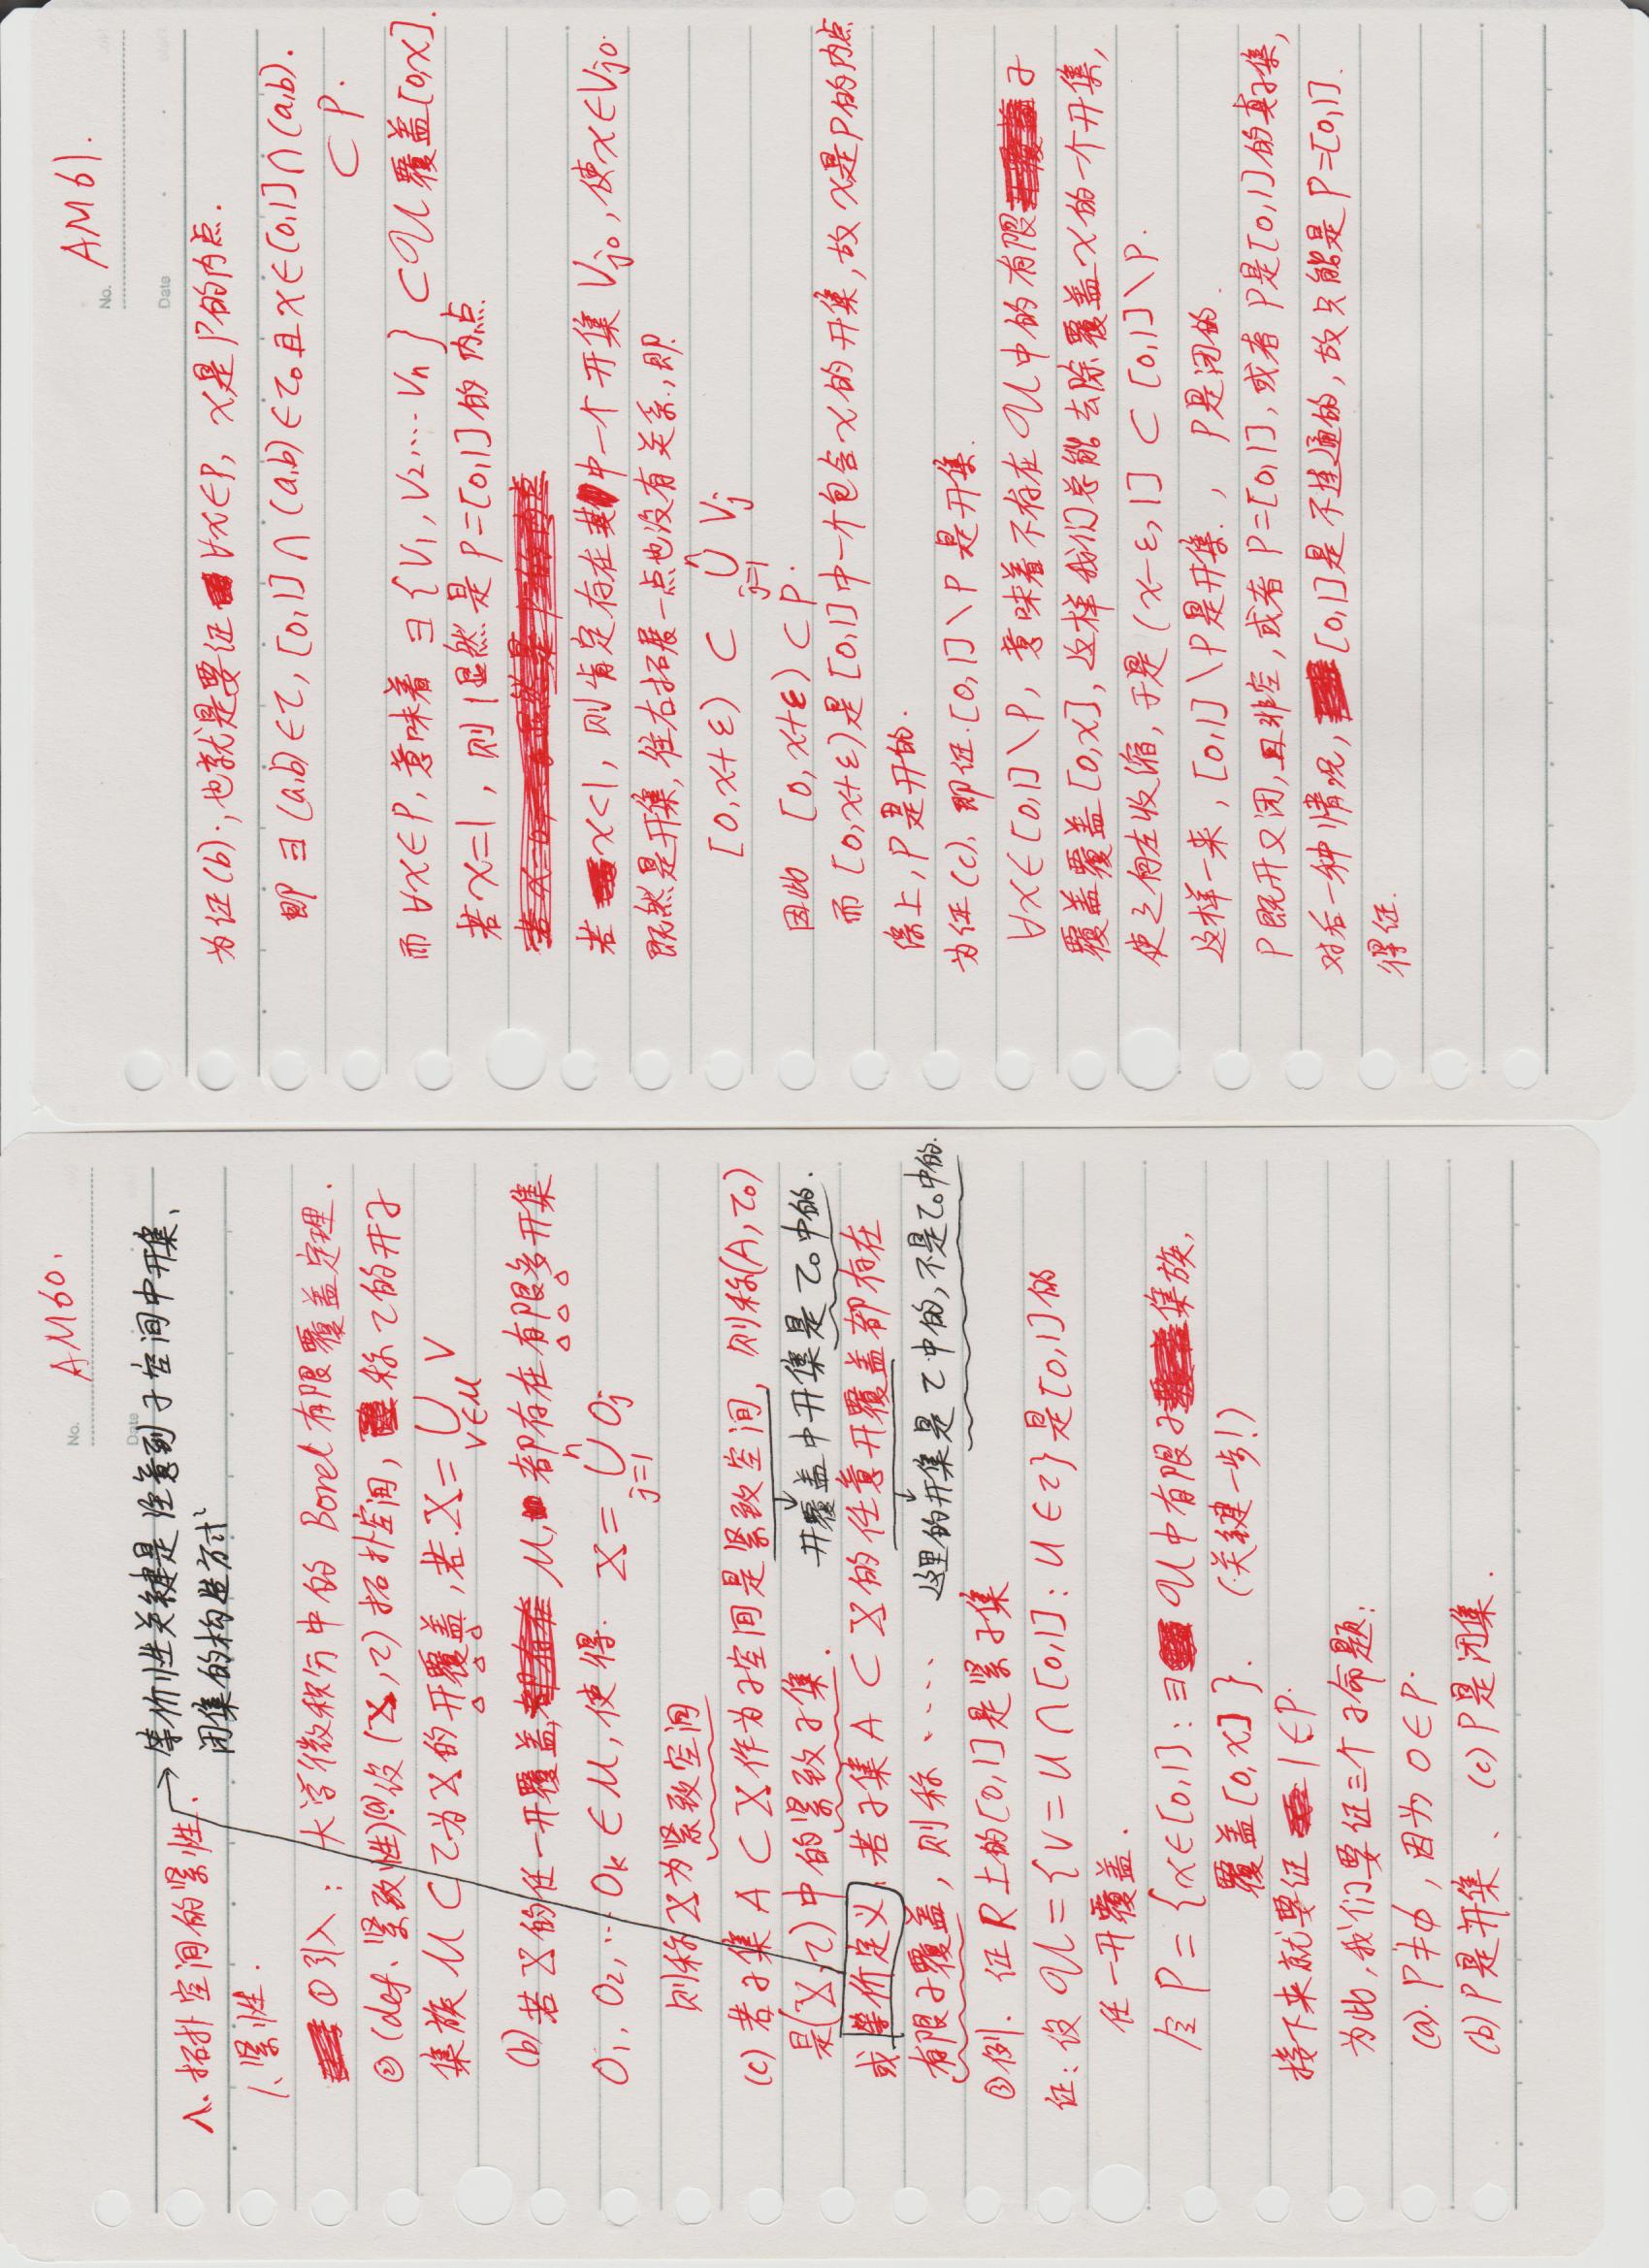 No. AM60.
Date
等价性关键是注意到子空间中开集、
闭集的构造方式
八、拓扑空间的紧性.
1、紧性.
①引入：大学微积分中的 Borel 有限覆盖定理.
②(def. 紧致性)(a)设 (X,τ) 拓扑空间, 称τ的开子
集族 U ⊂ τ为X的开覆盖,若.X= ∪ V
V∈U
(b)若X的任一开覆盖, U, 都存在有限多开集
O₁, O₂, … Oₖ ∈ U, 使得. X = ⋃ⁿⱼ₌₁ Oⱼ
则称X为紧致空间
(c) 若子集 A ⊂ X 作为子空间是紧致空间, 则称(A,τ₀)
是(X,τ)中的紧致子集.
开覆盖中开集是τ₀中的.
或等价定义: 若子集 A ⊂ X 的任意开覆盖都存在
有限子覆盖, 则称 ····
这里的开集是τ中的,不是τ₀中的.
③例. 证 R 上的[0,1]是紧子集
证: 设 𝒰 = {V = U ∩ [0,1] : U ∈ τ} 是[0,1]的
任一开覆盖.
令 P = {x∈[0,1] : ∃ 𝒰中有限子集族,
覆盖[0,x]}. (关键一步!)
接下来就要证 1∈P.
为此,我们要证三个子命题:
(a). P≠∅, 因为 0∈P.
(b) P是开集、 (c) P是闭集.
No. AM61.
Date
为证(b)., 也就是要证 ∀x∈P, x是P的内点.
即 ∃ (a,b)∈τ, [0,1]∩(a,b)∈τ₀且x∈[0,1]∩(a,b).
⊂ P.
而∀x∈P, 意味着 ∃ {V₁, V₂ ···· Vₙ} ⊂ 𝒰 覆盖[0,x].
若x=1, 则1显然是P=[0,1]的内点
若 x<1, 则肯定存在其中一个开集 Vⱼ₀, 使x∈Vⱼ₀.
既然是开集, 往右拓展一点也没有关系., 即
[0,x+ε) ⊂ ⋃ⁿⱼ₌₁ Vⱼ
因此 [0,x+ε) ⊂ P.
而 [0,x+ε)是[0,1]中一个包含x的开集,故x是P的内点
综上, P是开的.
为证(c), 即证.[0,1]\P 是开集.
∀x∈[0,1]\P, 意味着不存在𝒰中的有限子
覆盖覆盖[0,x], 这样我们总能去除覆盖x的一个开集,
使之向左收缩, 于是 (x-ε,1] ⊂ [0,1]\P.
这样一来, [0,1]\P是开集., P是闭的.
P既开又闭,且非空, 或者 P=[0,1], 或者 P是[0,1]的真子集,
对后一种情况, [0,1]是不连通的,故只能是P=[0,1].
得证.